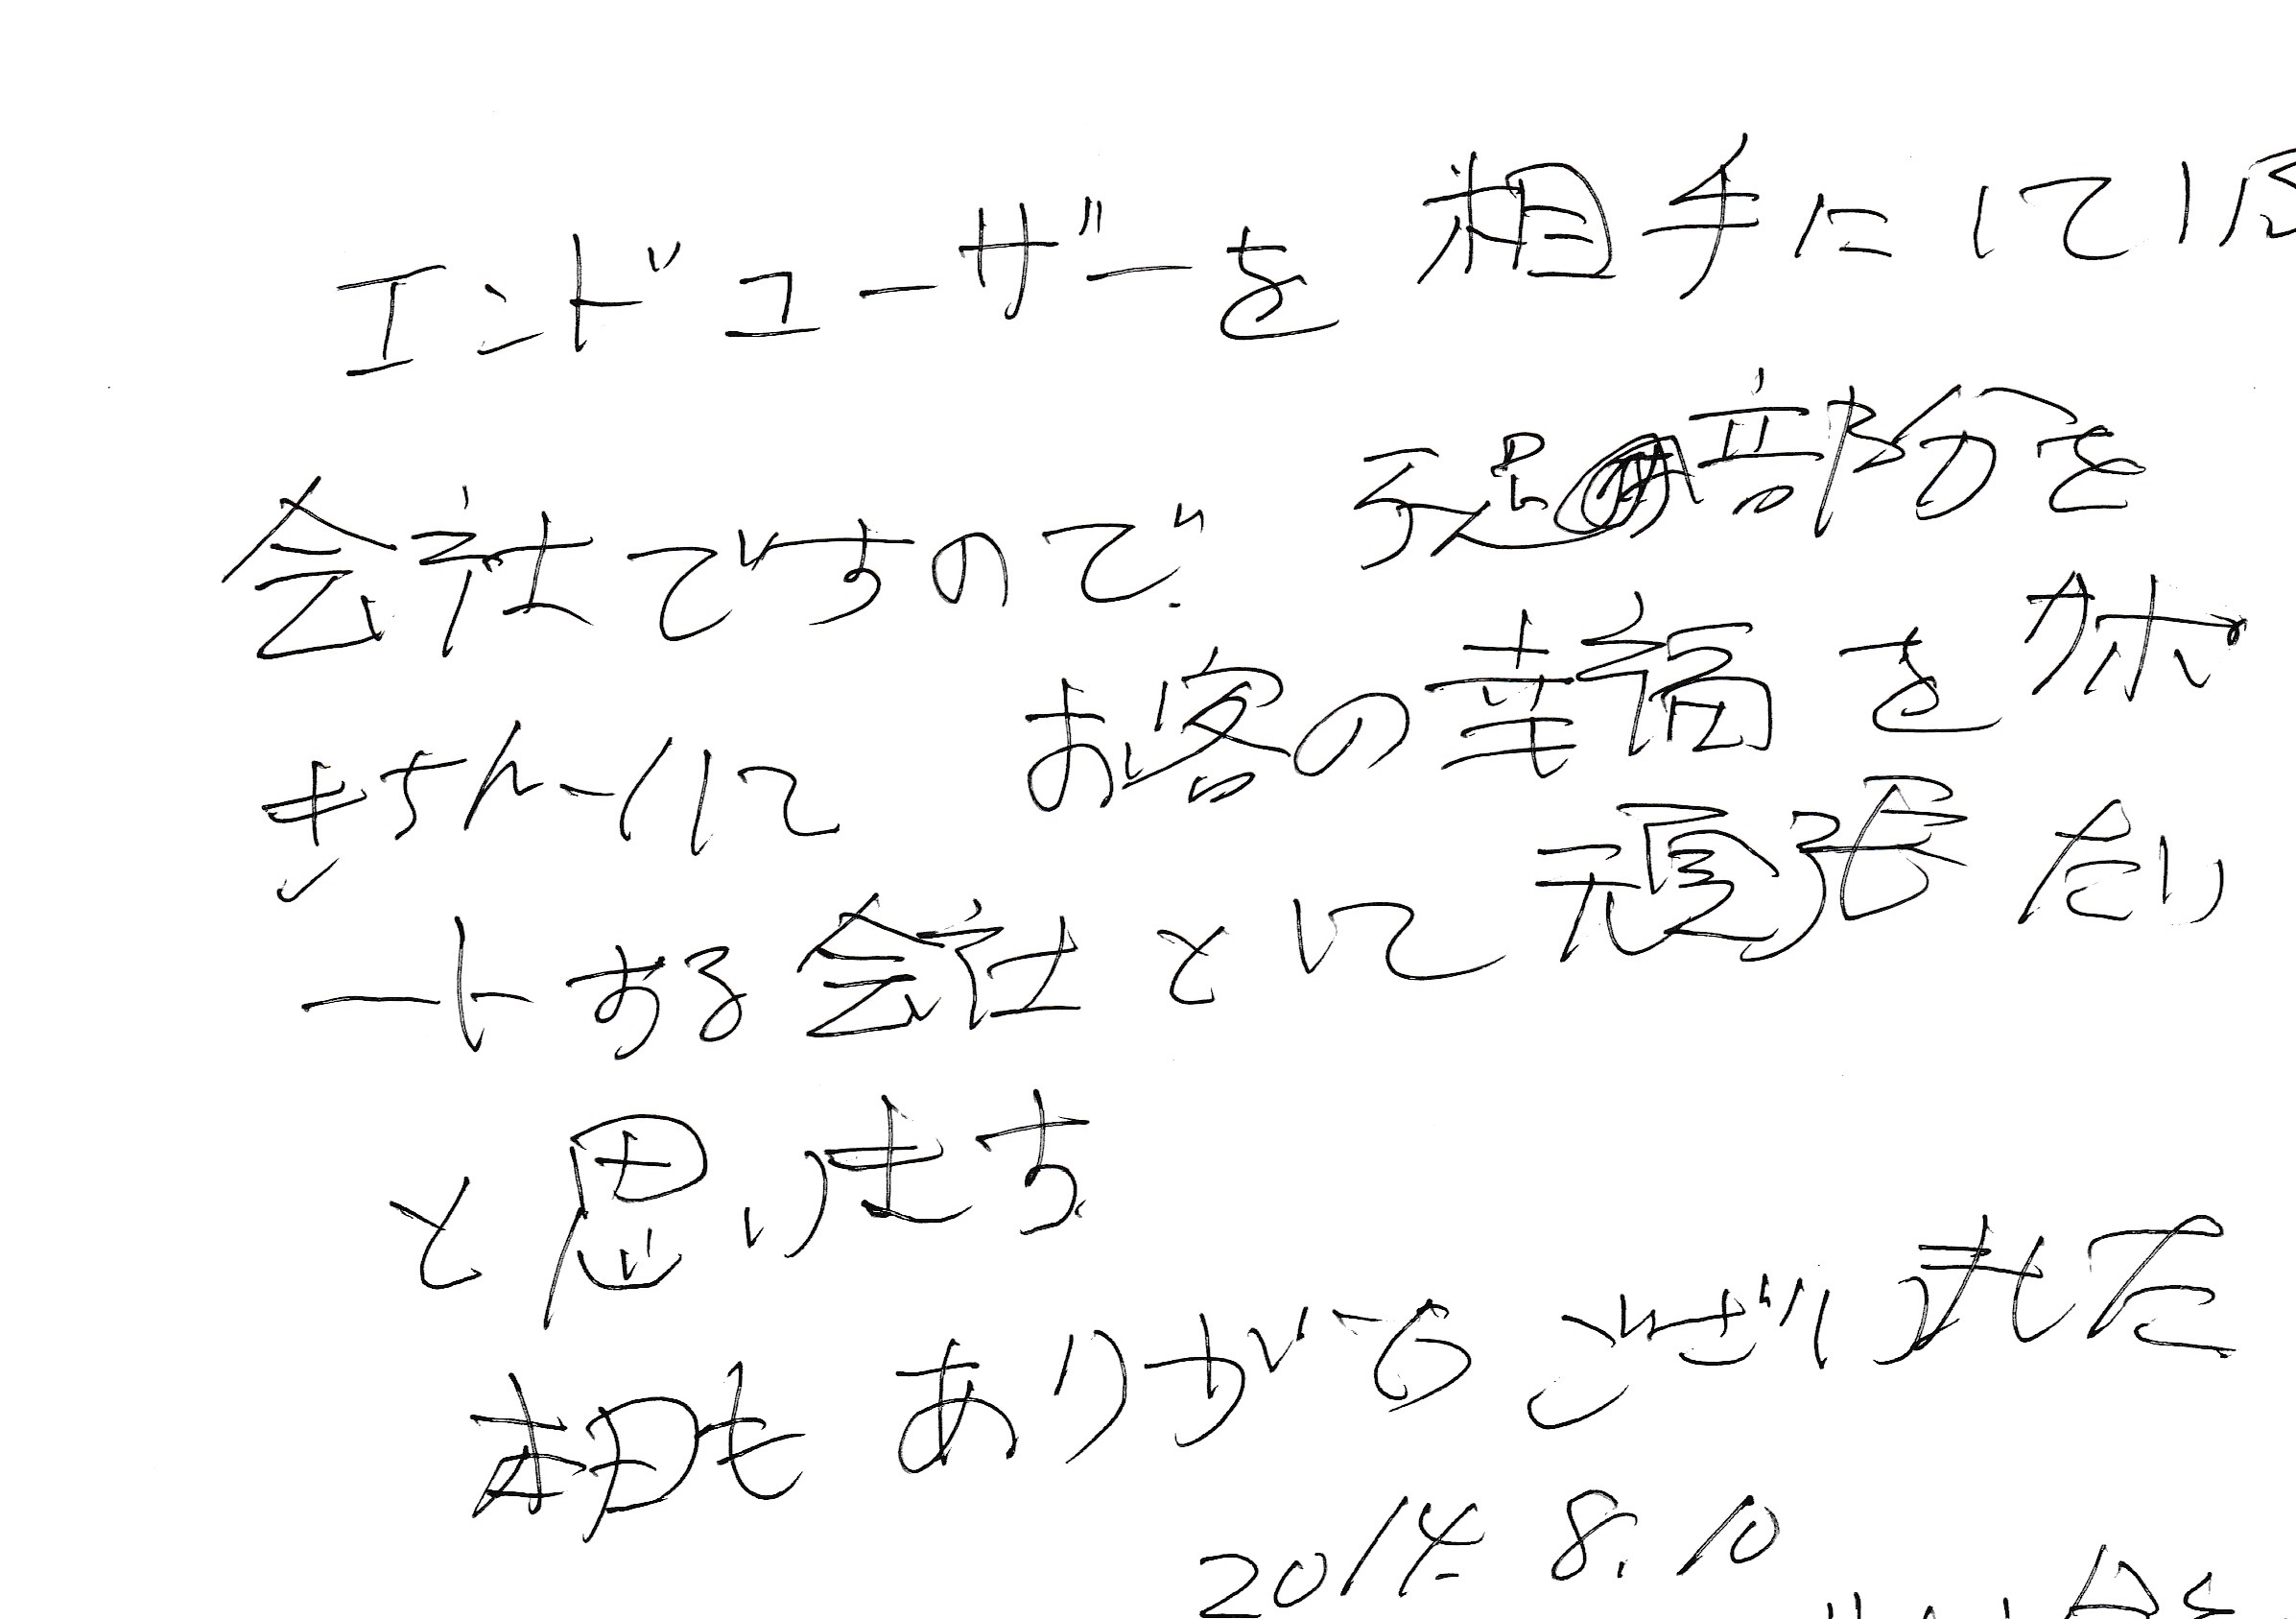 エンドユーザーを 相手にしている
会社ですので. 予足の部分を
きちんとして お客の幸福をサポ
ートする会社として頑張たい
と思います.
本日も ありがとうございました
2014. 8. 10